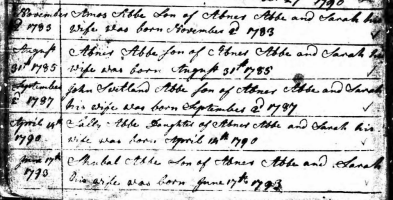 1790
November Amos Abbe Son of Abner Abbe and Sarah his
1783 wife was born November 1783
August Abner Abbe Son of Abner Abbe and Sarah his
31st 1785 wife was born August 31st 1785
September John Abbe Son of Abner Abbe and Sarah
1787 his wife was born September 1787
April 14th Abbe Daughter of Abner Abbe and Sarah his
1790 wife was born April 14th 1790
June 17th Abbe Son of Abner Abbe and Sarah
1793 his wife was born June 17th 1793